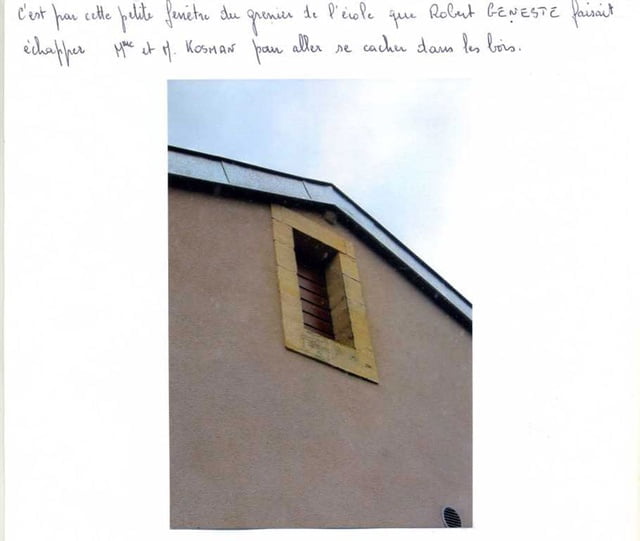 C'est par cette petite fenêtre du grenier de l'école que Robert GENESTE faisait
échapper Mme et M. KOSMAN pour aller se cacher dans les bois.